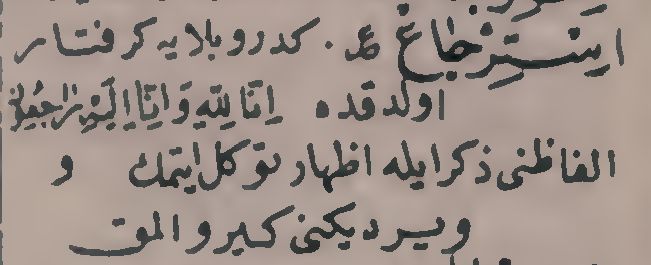 استرجاع ع. كدر و بلايه كرفتار
اولدقده اِنَّا لِلّٰهِ وَاِنَّا اِلَيْهِ رَاجِعُونَ
الفاظنى ذكر ايله اظهار توكل ايتمك و
ويرديكنى كيرو المق